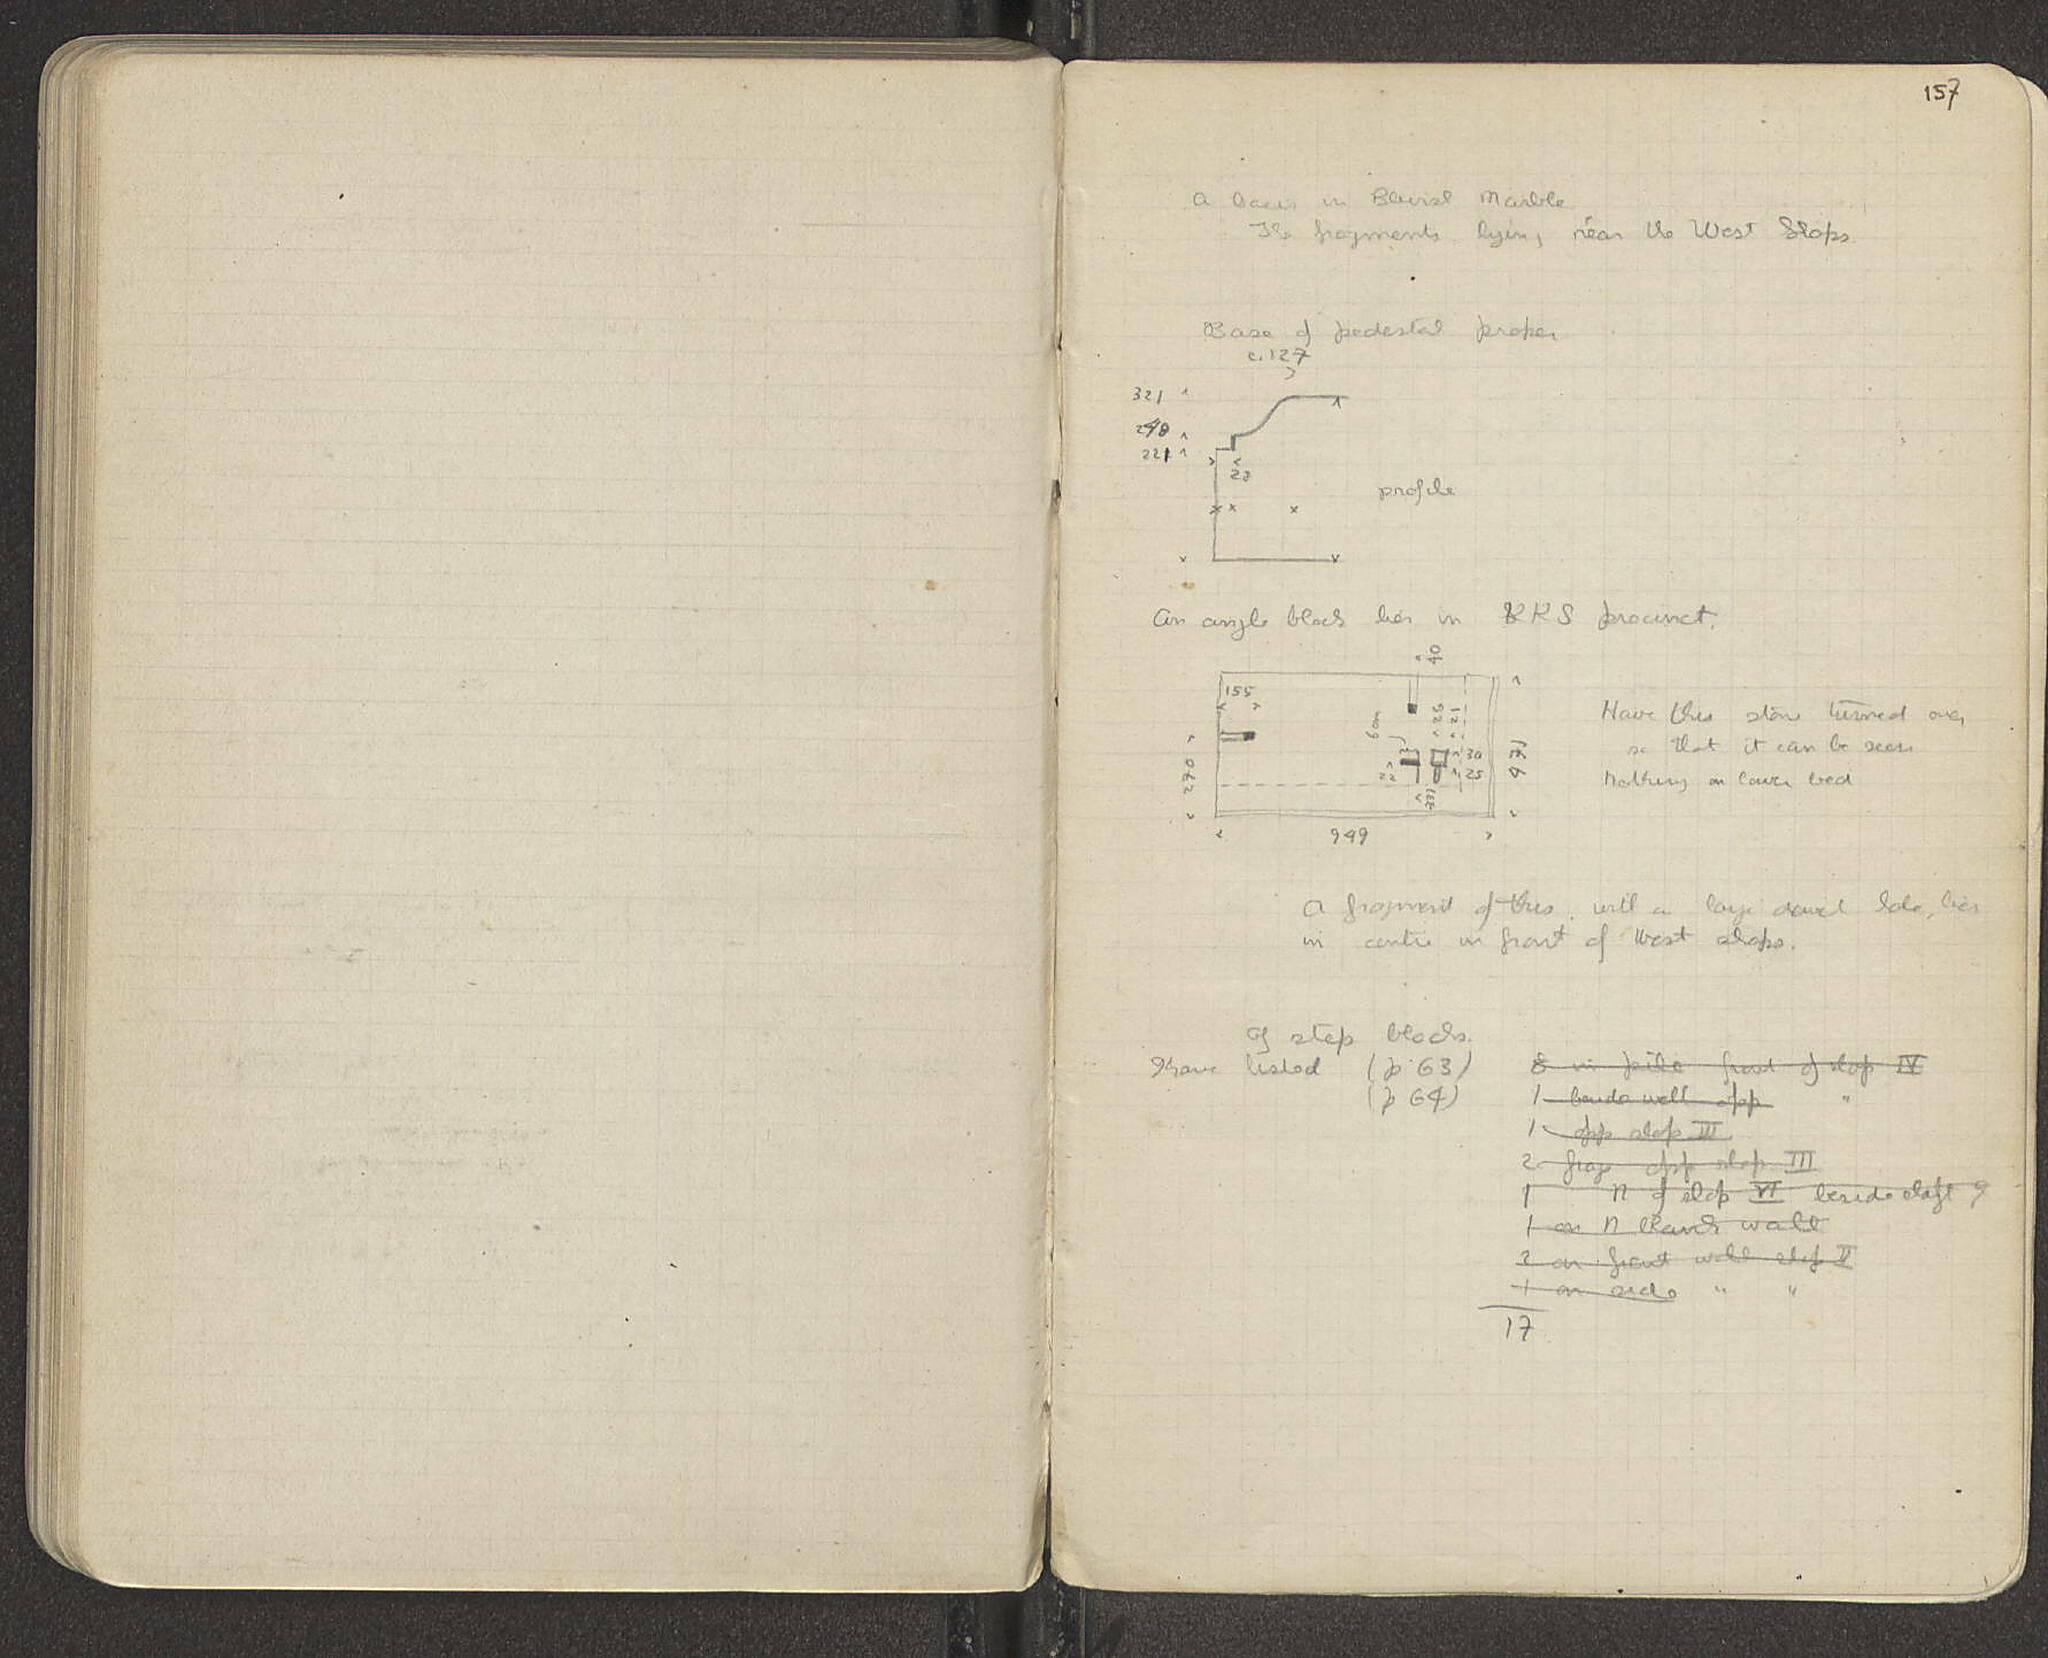 157
A basis in Bluish Marble
The fragments lying near the West Shops.
Base of pedestal proper
c. 127
321
248
221
22
profile
An angle block lies in RRS precinct.
40
155
6 cm
29 21
30
22
25
270
471
231
949
Have this stone turned over
so that it can be seen
Nothing on lower bed
A fragment of this, with a large dowel hole, lies
in centre in front of West shops.
Of step blocks.
I have listed (p 63) 8 in pile front of shop IV
(p 64) 1 beside well opp "
1 opp shop III
2 frags opp shop III
1 N of shop VI beside shaft 9
1 on N wall
2 on front wall shop II
1 on side " "
17